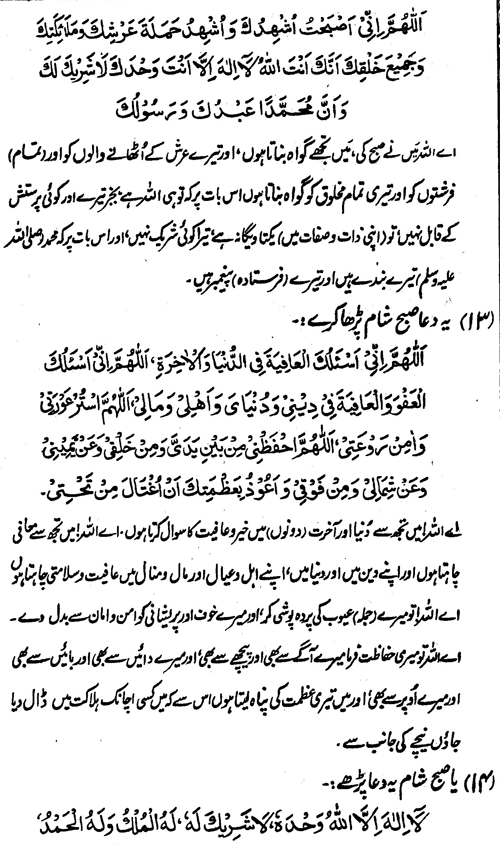 اَللّٰهُمَّ اِنِّیْ اَصْبَحْتُ اُشْهِدُكَ وَاُشْهِدُ حَمَلَةَ عَرْشِكَ وَمَلَائِكَتِكَ
وَجَمِیْعَ خَلْقِكَ اَنَّكَ اَنْتَ اللّٰهُ لَآ اِلٰهَ اِلَّا اَنْتَ وَحْدَكَ لَا شَرِیْكَ لَكَ
وَاَنَّ مُحَمَّدًا عَبْدُكَ وَرَسُوْلُكَ
اے اللہ میں نے صبح کی، میں تجھے گواہ بناتا ہوں، اور تیرے عرش کے اُٹھانے والوں کو اور (تمام)
فرشتوں کو اور تیری تمام مخلوق کو گواہ بناتا ہوں اس بات پر کہ تو ہی اللہ ہے، بجز تیرے اور کوئی پرستش
کے قابل نہیں، تو (اپنی ذات و صفات میں) یکتا و یگانہ ہے، تیرا کوئی شریک نہیں، اور اس بات پر کہ محمد (صلی اللہ
علیہ وسلم) تیرے بندے ہیں اور تیرے (فرستادہ) پیغمبر ہیں۔
(۱۳) یہ دعا صبح شام پڑھا کرے :۔
اَللّٰهُمَّ اِنِّیْ اَسْئَلُكَ الْعَافِیَةَ فِی الدُّنْیَا وَالْاٰخِرَةِ، اَللّٰهُمَّ اِنِّیْ اَسْئَلُكَ
الْعَفْوَ وَالْعَافِیَةَ فِیْ دِیْنِیْ وَدُنْیَایَ وَاَهْلِیْ وَمَالِیْ، اَللّٰهُمَّ اسْتُرْ عَوْرَتِیْ
وَاٰمِنْ رَوْعَتِیْ، اَللّٰهُمَّ احْفَظْنِیْ مِنْ بَیْنِ یَدَیَّ وَمِنْ خَلْفِیْ وَعَنْ یَمِیْنِیْ
وَعَنْ شِمَالِیْ وَمِنْ فَوْقِیْ وَاَعُوْذُ بِعَظْمَتِكَ اَنْ اُغْتَالَ مِنْ تَحْتِیْ۔
اے اللہ! میں تجھ سے دُنیا اور آخرت (دونوں) میں خیر و عافیت کا سوال کرتا ہوں۔ اے اللہ! میں تجھ سے معافی
چاہتا ہوں اور اپنے دین میں اور دنیا میں، اپنے اہل و عیال اور مال و منال میں عافیت و سلامتی چاہتا ہوں
اے اللہ! تو میرے (جملہ) عیوب کی پردہ پوشی کر، اور میرے خوف اور پریشانی کو امن و امان سے بدل دے۔
اے اللہ تو میری حفاظت فرما میرے آگے سے بھی، اور پیچھے سے بھی، اور میرے دائیں سے بھی، اور بائیں سے بھی
اور میرے اُوپر سے بھی، اور میں تیری عظمت کی پناہ لیتا ہوں اس سے کہ میں کسی اچانک ہلاکت میں ڈال دیا
جاؤں نیچے کی جانب سے۔
(۱۴) یا صبح شام یہ دعا پڑھے :۔
لَآ اِلٰهَ اِلَّا اللّٰهُ وَحْدَهٗ، لَا شَرِیْكَ لَهٗ، لَهُ الْمُلْكُ وَلَهُ الْحَمْدُ،